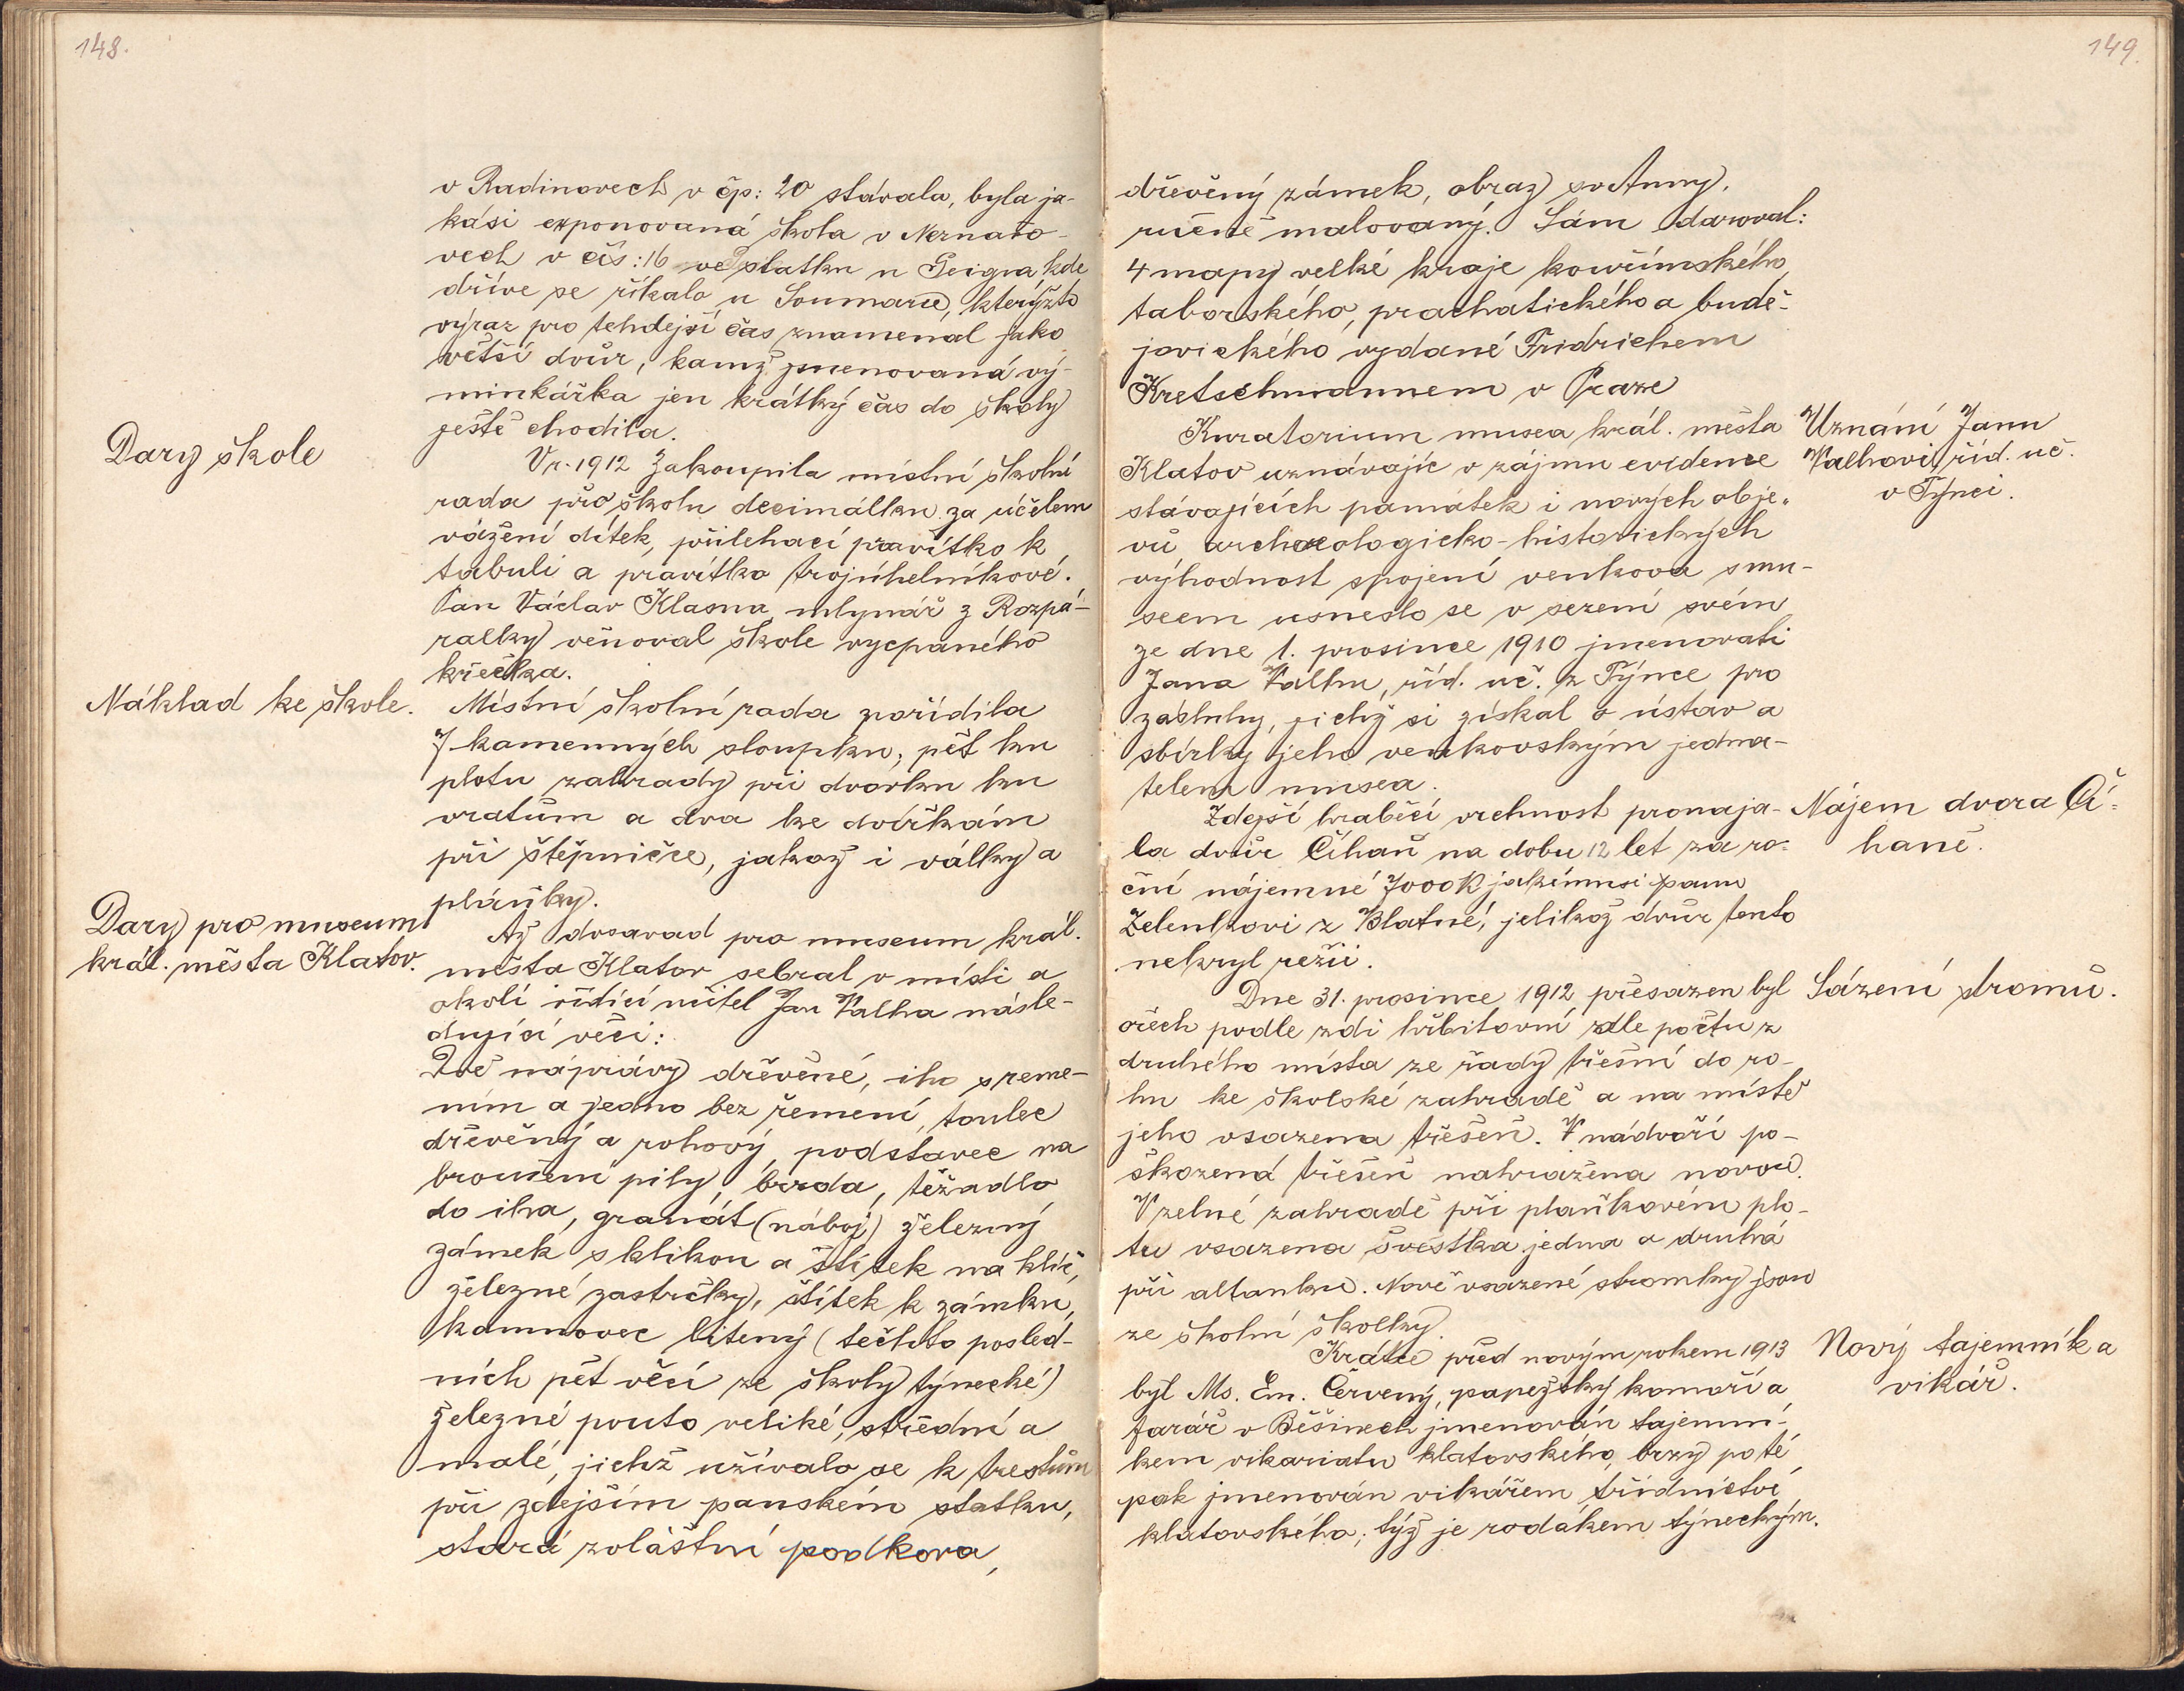 148.
v Radinovech v čp: 20 stávala, byla ja-
kási exponovaná škola v Neznašo-
vech v čís: 16 ve statku u Geigra, kde
dříve se říkalo u Soumara, kterýžto
výraz pro tehdejší čas znamenal jako
větší dvůr, kamž jmenovaná vý-
minkářka jen krátký čas do školy
ještě chodila.
Dary škole
V r. 1912 zakoupila místní školní
rada pro školu decimálku za účelem
vážení dítek, přilehací pravítko k
tabuli a pravítko trojúhelníkové.
Pan Václav Klasna mlynář z Rozpá-
ralky věnoval škole vycpaného
křečka.
Náklad ke škole.
Místní školní rada pořídila
7 kamenných sloupků, pět ku
plotu zahrady při dvorku ku
vratům a dva ke dvířkám
při štěpničce, jakož i války a
pláňky.
Dary pro museum
král. města Klatov.
Až dosavad pro museum král.
města Klatov sebral v místě a
okolí řídící učitel Jan Valha násle-
dující věci:
Dvě nápravy dřevěné, iho s řeme-
ním a jedno bez řemení, toulec
dřevěný a rohový, podstavec na
broušení pily, brzda, těžadlo
do iha, granát (náboj) železný
zámek s klikou a štítek na klíč,
železné zastrčky, štítek k zámku,
kamnovec litený (těchto posled-
ních pět věcí ze školy týnecké)
železné pouto veliké, střední a
malé, jichž užívalo se k trestům
při zdejším panském statku,
stará zvláštní podkova,
149.
dřevěný zámek, obraz sv Anny,
ručně malovaný. Sám daroval:
4 mapy velké kraje kouřimského,
taborského, prachatického a budě-
jovického vydané Fridrichem
Kretschmannem v Praze
Uznání Janu
Valhovi, říd. uč.
v Týnci.
Kuratorium musea král. města
Klatov uznávajíc v zájmu evidence
stávajících památek i nových obje-
vů archaeologicko-historických
výhodnost spojení venkova s mu-
seem usneslo se v sezení svém
ze dne 1. prosince 1910 jmenovati
Jana Valhu, říd. uč. z Týnce pro
zásluhy, jichž si získal o ústav a
sbírky jeho venkovským jedna-
telem musea.
Nájem dvora Čí-
haně.
Zdejší hraběcí vrchnost pronaja-
la dvůr Číhaň na dobu 12 let za ro-
ční nájemné 7000 K jakémusi panu
Zelenkovi z Blatné, jelikož dvůr tento
nekryl režii.
Sázení stromů.
Dne 31. prosince 1912 přesazen byl
ořech podle zdi hřbitovní zdle počtu z
druhého místa ze řady třešní do ro-
hu ke školské zahradě a na místě
jeho vsazena třešeň. V nádvoří po-
škozená třešeň nahražena novou.
V zelné zahradě při plaňkovém plo-
tu vsazena švestka jedna a druhá
při altánku. Nově vsazené stromky jsou
ze školní školky.
Nový tajemník a
vikář.
Krátce před novým rokem 1913
byl Ms. Em. Červený, papežský komoří a
farář v Běšinech jmenován tajemní-
kem vikariatu klatovského, brzy poté
pak jmenován vikářem třídnictví
klatovského; týž je rodákem týneckým.